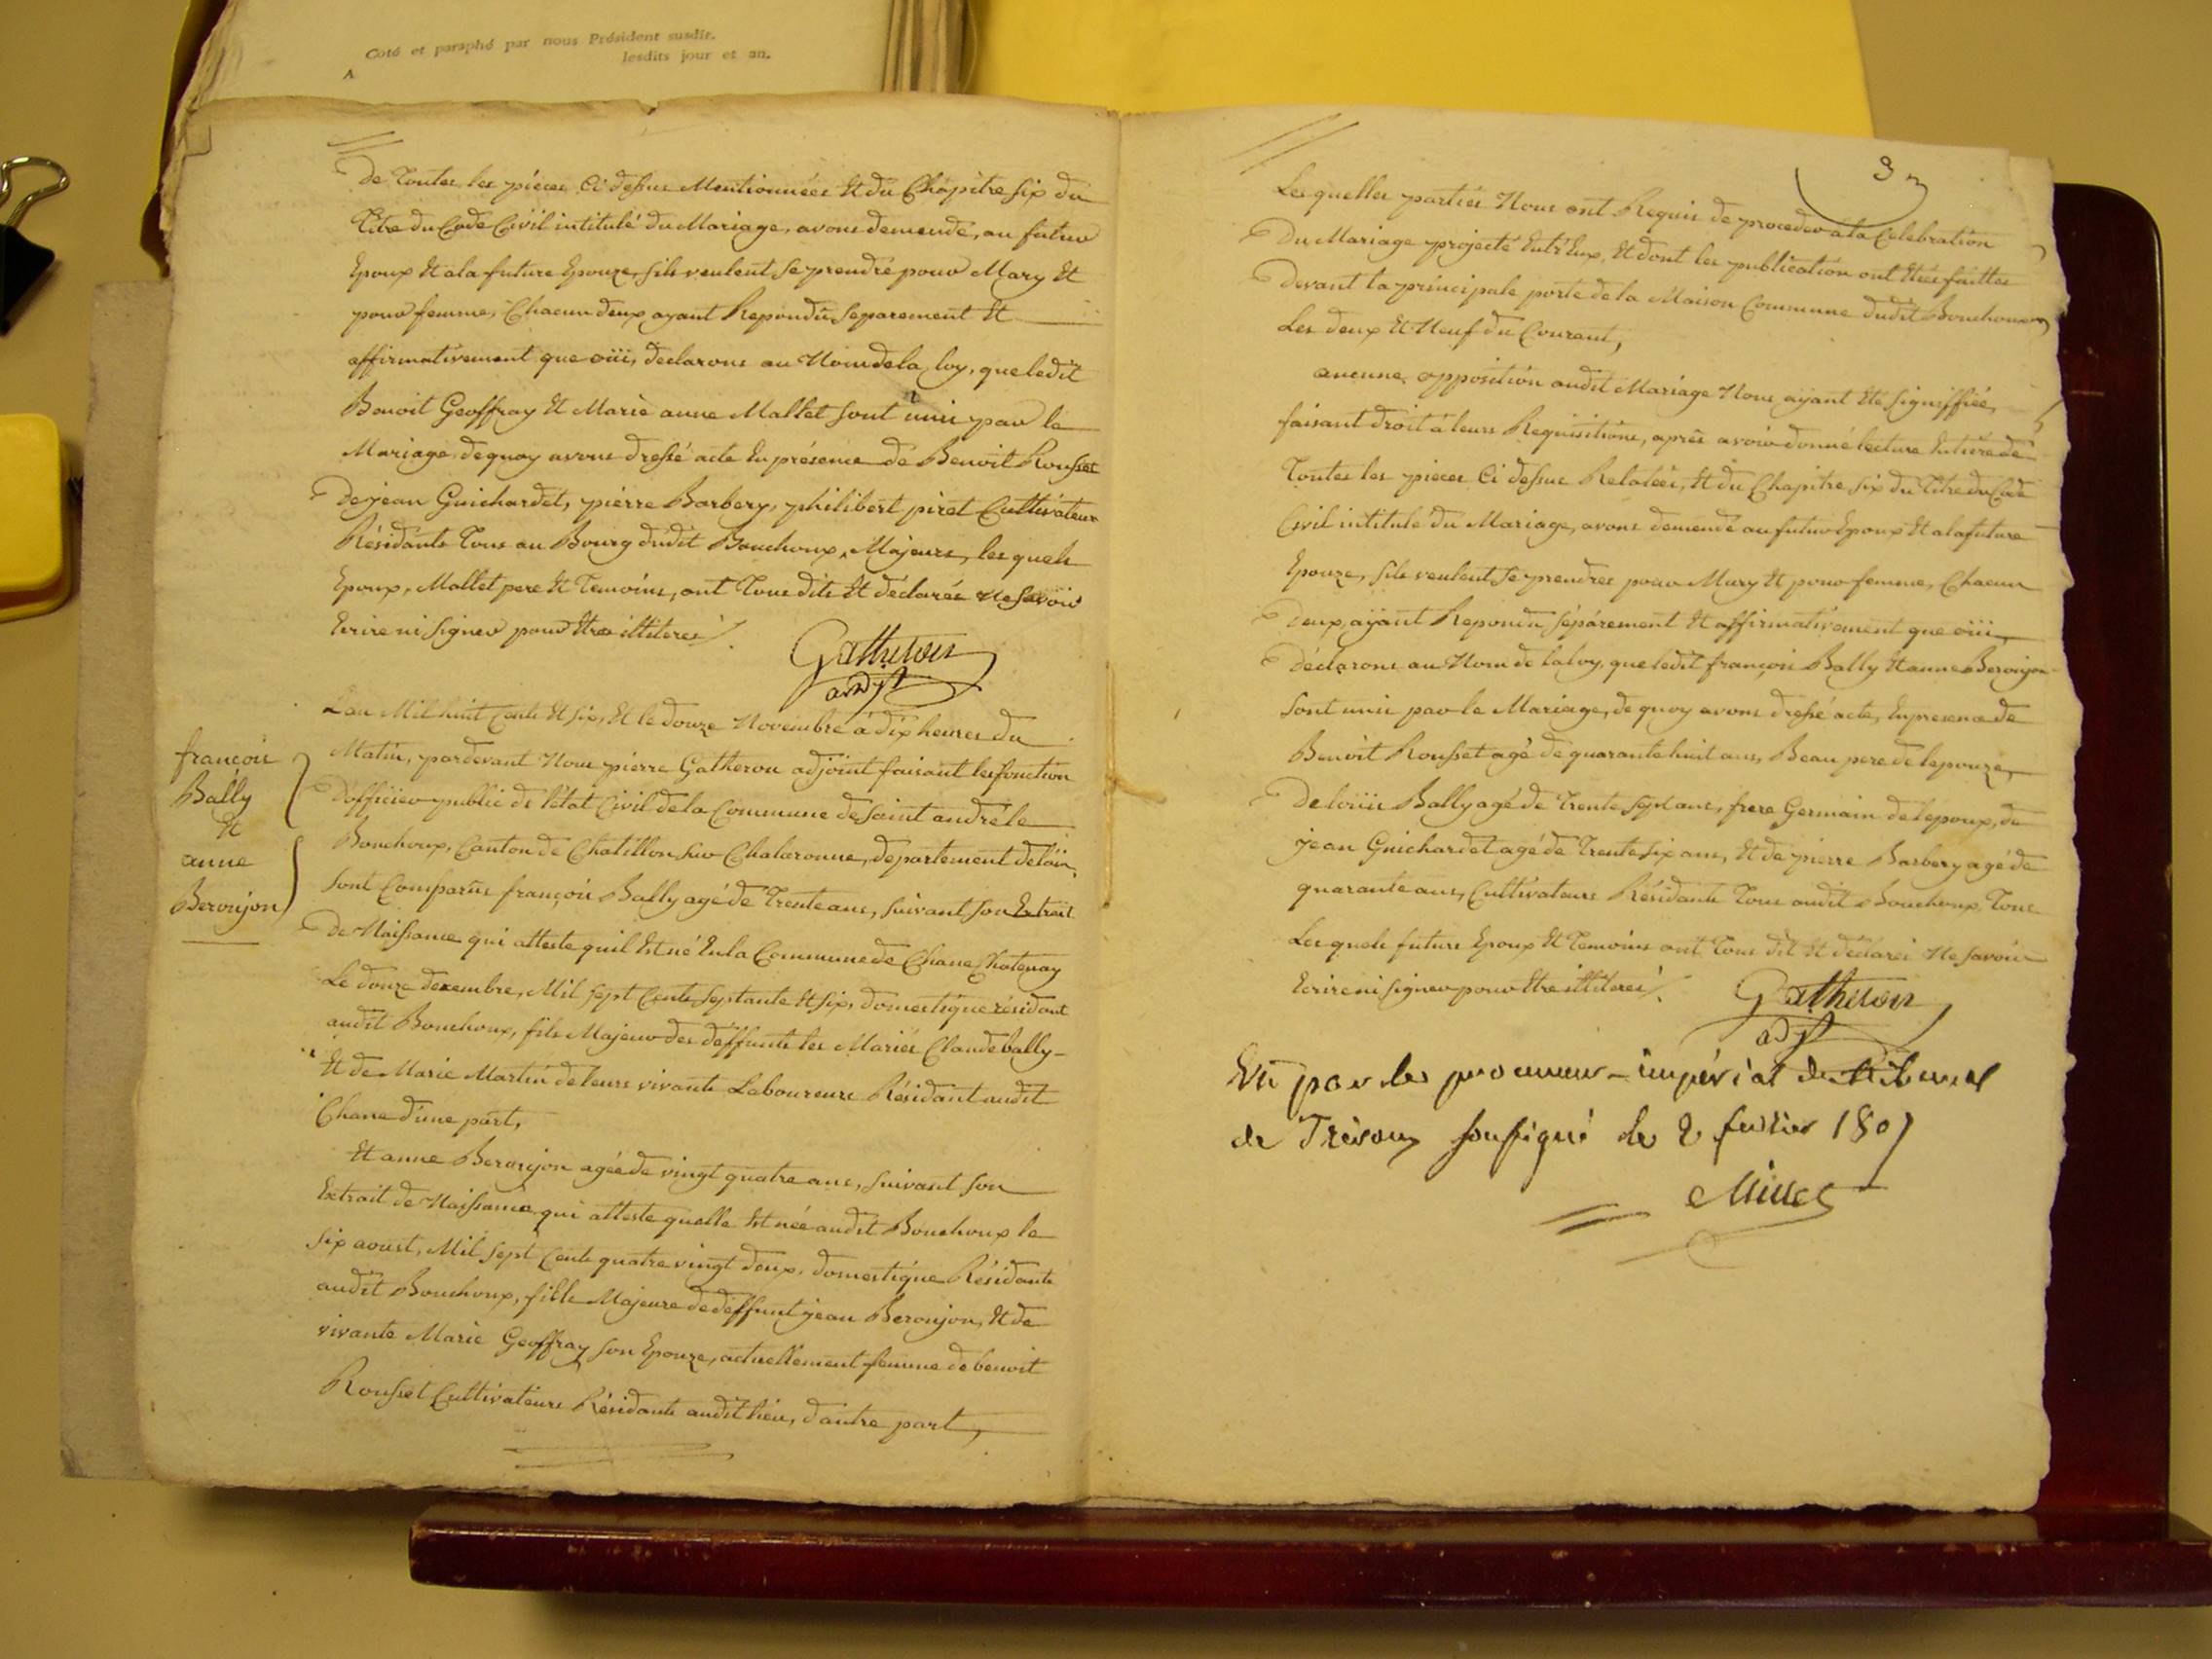 Coté et paraphé par nous Président susdit.
lesdits jour et an.
De Toutes les pieces Ci dessus Mentionnées Et du Chapitre six du
Titre du Code Civil intitulé du Mariage, avons demendé, au futur
Epoux Et ala future Epouze, sils veulent se prendre pour Mary Et
pour femme, Chacun deux ayant Repondû Separement Et
affirmativement que oüi, declarons au Nom de la loy, que ledit
Benoit Geoffray Et Marie anne Mallet sont unis par le
Mariage dequoy avons dressé acte En présence de Benoit Rousset
De jean Guichardet, pierre Barbery, philibert piret Cultivateur
Résidants Tous au Bourg dudit Bouchoux, Majeurs, les quels
Epoux, Mallet pere Et Temoins, ont Tous dits Et déclarés Ne Savoir
Ecrire ni Signer pour Etre illiterés /.
Gatheron
adjt
L'an Mil huit Cents Et Six, Et le douze Novembre à dix heures du
Matin, pardevant Nous pierre Gatheron adjoint faisant les fonction
Dofficier public de l'état Civil de la Commune de Saint andré le
Bouchoux, Canton de Chatillon sur Chalaronne, departement de lain,
Sont Comparûs françois Bally agé de Trente ans, suivant son Extrait
De Naissance qui atteste quil Est né En la Commune de Chane Chatenay
Le douze decembre, Mil Sept Cents Septante Et Six, domestique résidant
audit Bouchoux, fils Majeur des deffunts les Mariés Claude bally
Et de Marie Martin de leurs vivants Laboureurs Résidant audit
Chane d'une part,
françois
Bally
Et
anne
Beronjon
Et anne Beronjon agée de vingt quatre ans, suivant son
Extrait de Naissance qui atteste quelle Est née audit Bouchoux le
Six aoust, Mil Sept Cents quatre vingt deux, domestique Résidante
audit Bouchoux, fille Majeure de deffunt jean Beronjon, Et de
vivante Marie Geoffray son Epouze, actuellement femme de benoit
Rousset Cultivateurs Résidants audit lieu, d'autre part,
3
Lesquelles parties Nous ont Requis de proceder ala Celebration
Du Mariage projecté Entr'Eux, Et dont les publication ont Etées faittes
Devant la principale porte de la Maison Commune dudit Bouchoux
Les deux Et Neuf du Courant,
aucune opposition audit Mariage Nous ayant Eté Signiffiée,
faisant droit à leurs Requisitions, après avoir donné lecture Entière de
Toutes les pieces Ci dessus Relatées, Et du Chapitre Six du Titre du Code
Civil intitulé du Mariage, avons demendé au futur Epoux Et ala future
Epouze, sils veulent Se prendres pour Mary Et pour femme, Chacun
Deux, ayant Repondû séparement Et affirmativement que oüi,
Déclarons au Nom de la loy, que ledit françois Bally Et anne Beronjon
Sont unis par le Mariage, de quoy avons dressé acte, En presence de
Benoit Rousset agé de quarante huit ans, Beau pere de lepouze,
De loüis Bally agé de Trente Sept ans, frere Germain de lepoux, de
jean Guichardet agé de Trente Six ans, Et de pierre Barbery agé de
quarante ans, Cultivateurs Résidants Tous audit Bouchoux, Tous
Les quels future Epoux Et Temoins ont Tous dit Et déclarés Ne Savoir
Ecrire ni Signer pour Etre illiterés /.
Gatheron
adjt
Vu par le procureur impérial du tribunal
de Trévoux soussigné le 2 fevrier 1807
Millet